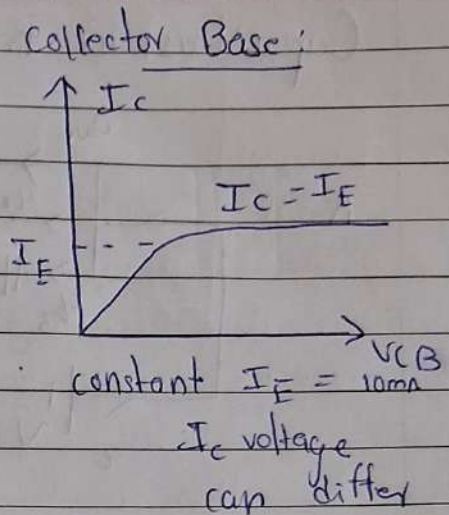 Collector Base:
Ic
Ic = IE
IE
VCB
constant IE = 10mA
Ic voltage
can differ